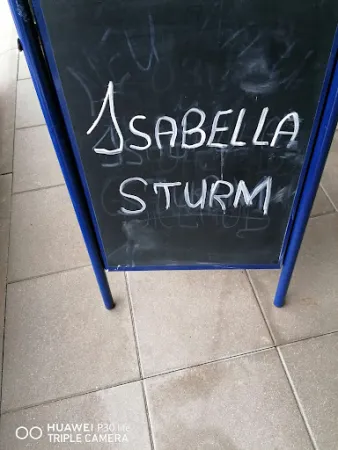 ISABELLA
STURM
HUAWEI P30 lite
TRIPLE CAMERA